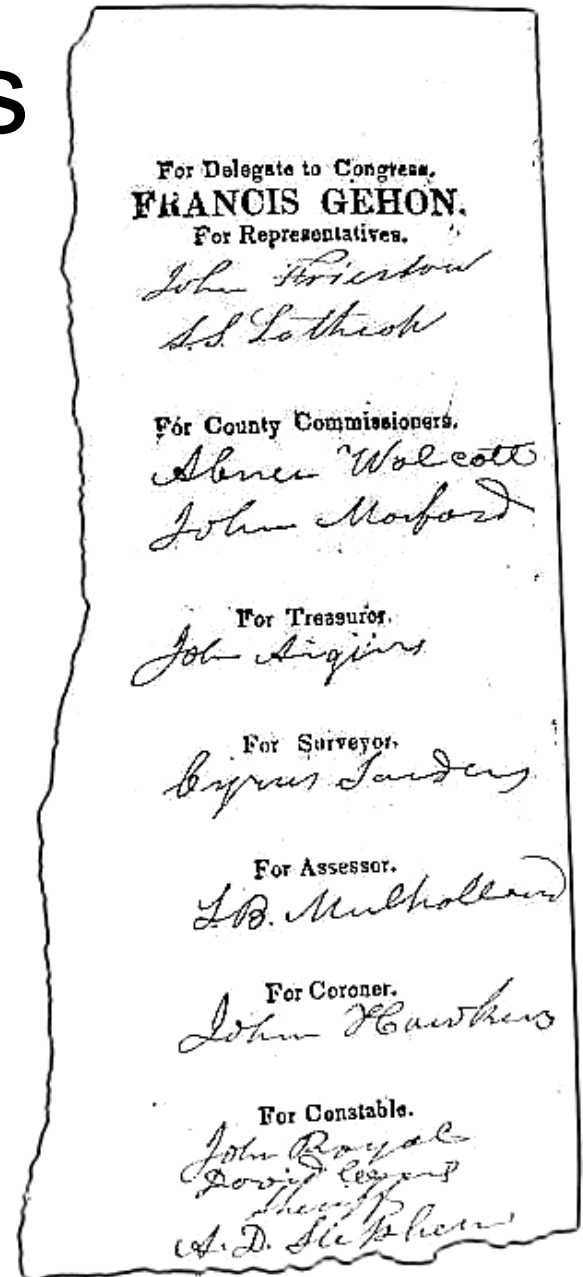 s
For Delegate to Congress,
FRANCIS GEHON.
For Representatives.
John Frierson
S.S. Lothrop
For County Commissioners.
Abner Wolcott
John Morford
For Treasurer.
John
For Surveyor.
Cyrus Sanders
For Assessor.
L.B. Mulholland
For Coroner.
John Hawkins
For Constable.
John Royal
David
Sheriff
A.D. Stephen